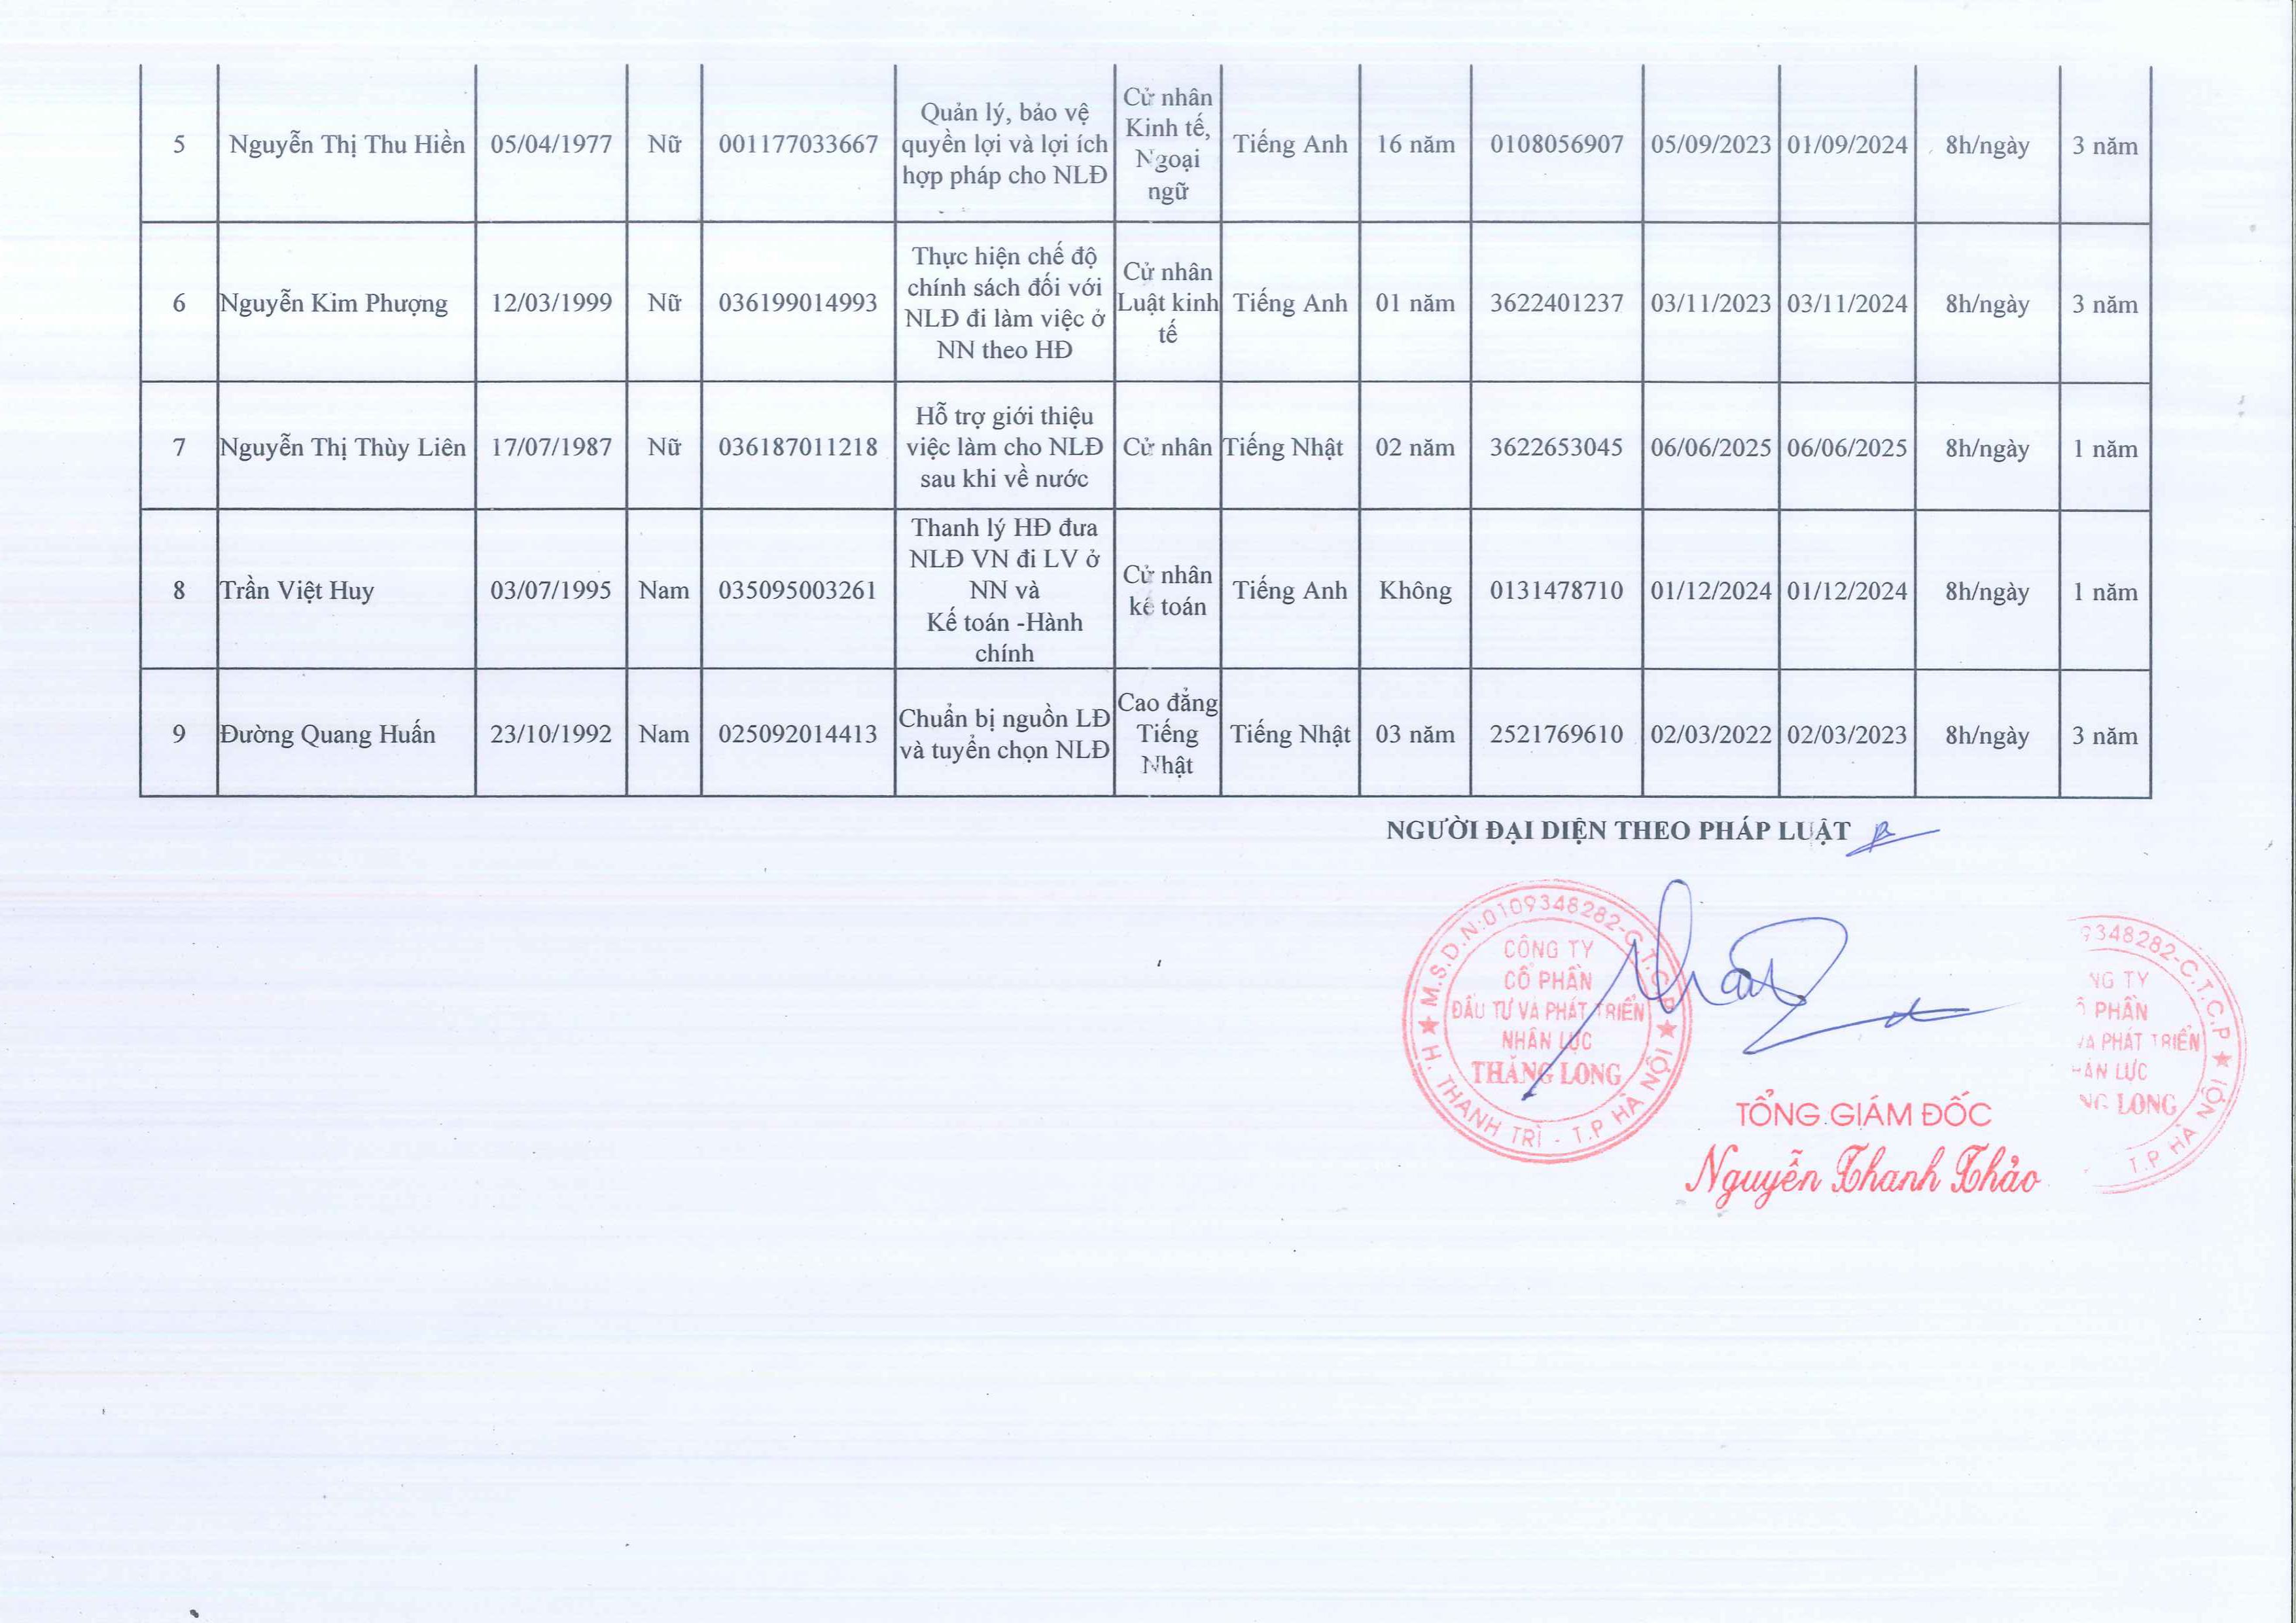 5 Nguyễn Thị Thu Hiền 05/04/1977 Nữ 001177033667 Quản lý, bảo vệ quyền lợi và lợi ích hợp pháp cho NLĐ Cử nhân Kinh tế, Ngoại ngữ Tiếng Anh 16 năm 0108056907 05/09/2023 01/09/2024 8h/ngày 3 năm
6 Nguyễn Kim Phượng 12/03/1999 Nữ 036199014993 Thực hiện chế độ chính sách đối với NLĐ đi làm việc ở NN theo HĐ Cử nhân Luật kinh tế Tiếng Anh 01 năm 3622401237 03/11/2023 03/11/2024 8h/ngày 3 năm
7 Nguyễn Thị Thùy Liên 17/07/1987 Nữ 036187011218 Hỗ trợ giới thiệu việc làm cho NLĐ sau khi về nước Cử nhân Tiếng Nhật 02 năm 3622653045 06/06/2025 06/06/2025 8h/ngày 1 năm
8 Trần Việt Huy 03/07/1995 Nam 035095003261 Thanh lý HĐ đưa NLĐ VN đi LV ở NN và Kế toán -Hành chính Cử nhân kế toán Tiếng Anh Không 0131478710 01/12/2024 01/12/2024 8h/ngày 1 năm
9 Đường Quang Huấn 23/10/1992 Nam 025092014413 Chuẩn bị nguồn LĐ và tuyển chọn NLĐ Cao đẳng Tiếng Nhật Tiếng Nhật 03 năm 2521769610 02/03/2022 02/03/2023 8h/ngày 3 năm
NGƯỜI ĐẠI DIỆN THEO PHÁP LUẬT
M.S.D.N:0109348282-C.T.C.P
CÔNG TY
CỔ PHẦN
ĐẦU TƯ VÀ PHÁT TRIỂN
NHÂN LỰC
THĂNG LONG
H. THANH TRÌ - T.P HÀ NỘI
TỔNG GIÁM ĐỐC
Nguyễn Thanh Thảo
9348282-C.T.C.P
NG TY
PHẦN
VÀ PHÁT TRIỂN
ÂN LỰC
NG LONG
T.P HÀ NỘI